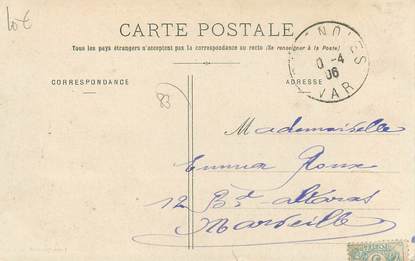 10 €
CARTE POSTALE
Tous les pays étrangers n'acceptent pas la correspondance au recto (Se renseigner à la Poste)
NOLES
0 -4
06
VAR
CORRESPONDANCE
ADRESSE
83
Mademoiselle
Emma Roux
12 Bd Altaras
Marseille